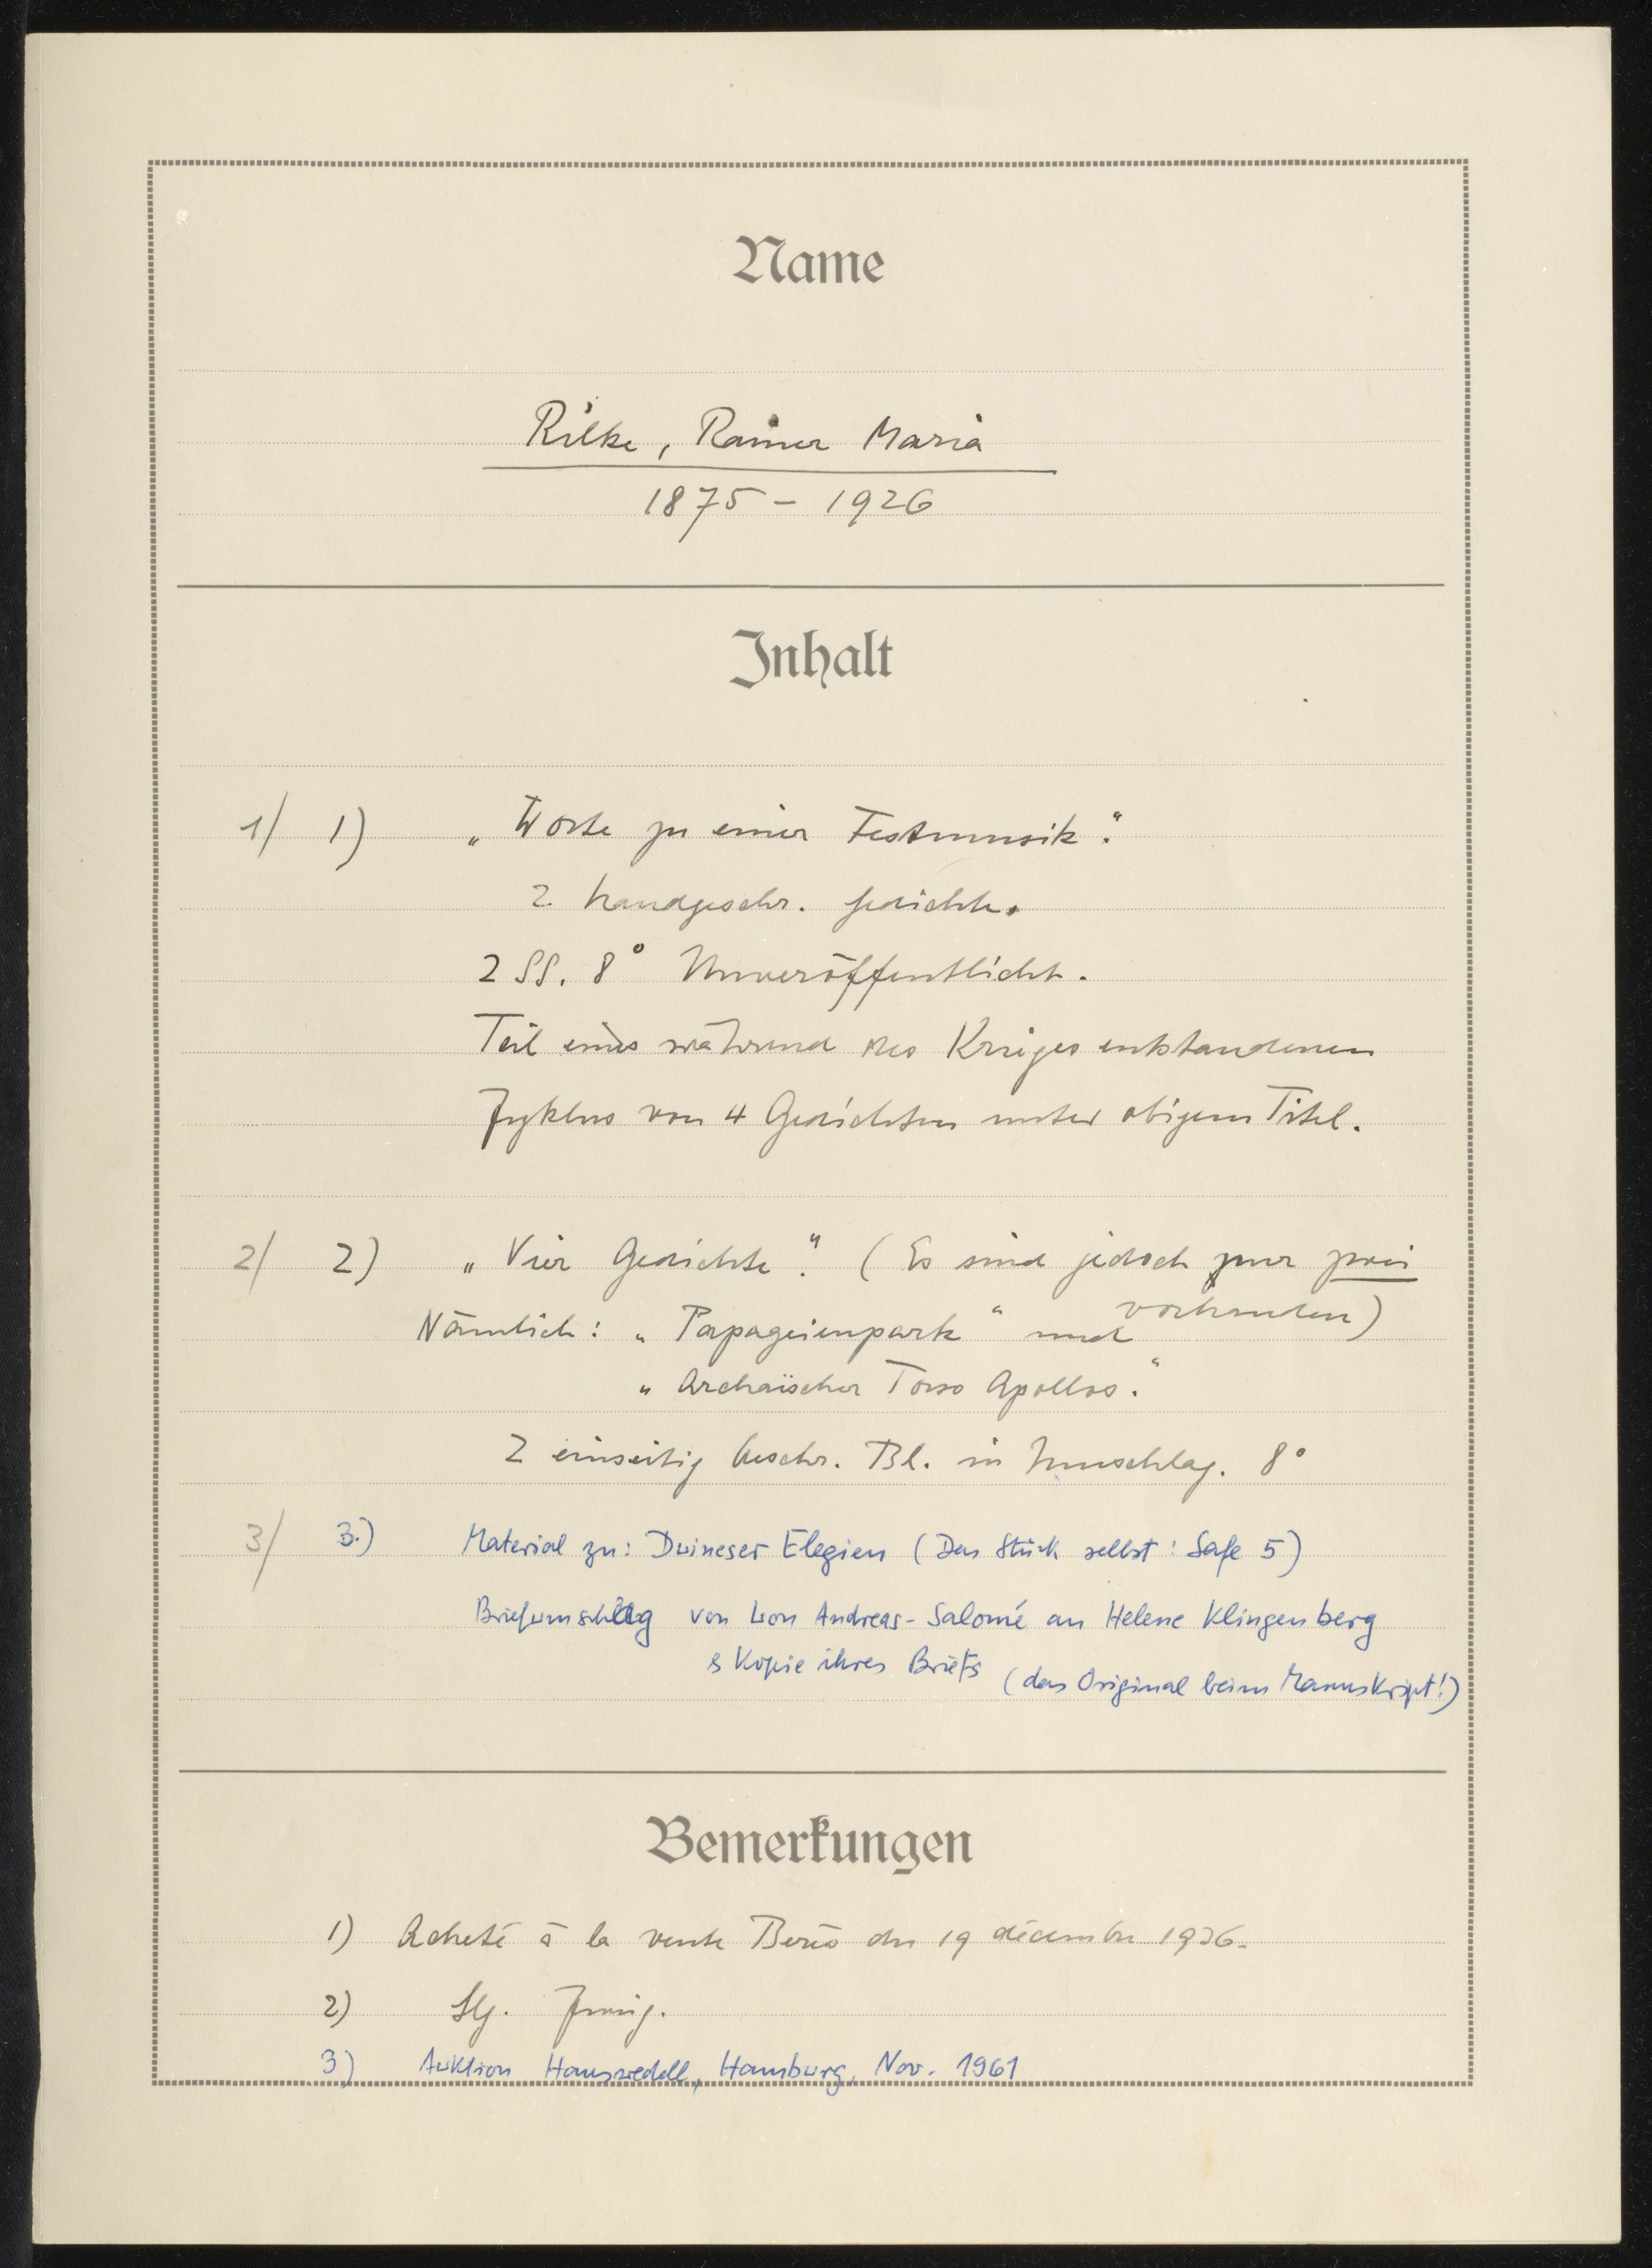 Name
Rilke, Rainer Maria
1875 – 1926
Inhalt
1/ 1) „Worte zu einer Festmusik".
2 handgeschr. Gedichte.
2 SS. 8° Unveröffentlicht.
Teil eines während des Krieges entstandenen
Zyklus von 4 Gedichten unter obigem Titel.
2/ 2) „Vier Gedichte". (Es sind jedoch nur zwei
vorhanden)
Nämlich: „Papageienpark" und
„Archaïscher Torso Apollos."
2 einseitig beschr. Bl. in Umschlag. 8°
3/ 3.) Material zu: Duineser Elegien (Das Stück selbst: Safe 5)
Briefumschlag von Lou Andreas-Salomé an Helene Klingenberg
& Kopie ihres Briefs (das Original beim Manuskript!)
Bemerkungen
1) Acheté à la vente Berès du 19 décembre 1936.
2) Slg. Zweig.
3) Auktion Hauswedell, Hamburg, Nov. 1961